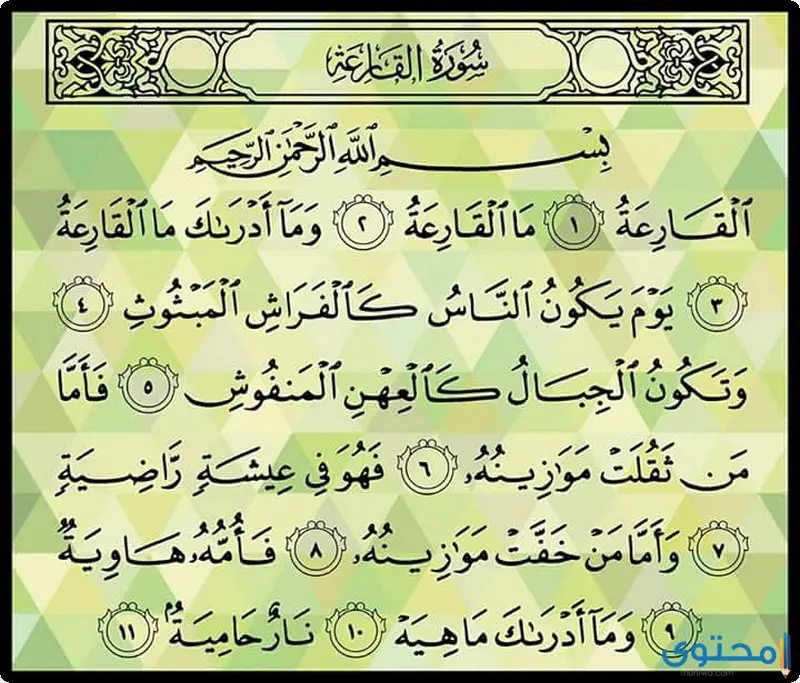 سُورَةُ القَارِعَةِ
بِسْمِ ٱللَّهِ ٱلرَّحْمَٰنِ ٱلرَّحِيمِ
ٱلْقَارِعَةُ ١ مَا ٱلْقَارِعَةُ ٢ وَمَآ أَدْرَىٰكَ مَا ٱلْقَارِعَةُ
٣ يَوْمَ يَكُونُ ٱلنَّاسُ كَٱلْفَرَاشِ ٱلْمَبْثُوثِ ٤
وَتَكُونُ ٱلْجِبَالُ كَٱلْعِهْنِ ٱلْمَنفُوشِ ٥ فَأَمَّا
مَن ثَقُلَتْ مَوَٰزِينُهُۥ ٦ فَهُوَ فِي عِيشَةٍ رَّاضِيَةٍ
٧ وَأَمَّا مَنْ خَفَّتْ مَوَٰزِينُهُۥ ٨ فَأُمُّهُۥ هَاوِيَةٌ
٩ وَمَآ أَدْرَىٰكَ مَا هِيَهْ ١٠ نَارٌ حَامِيَةٌۢ ١١
محتوى
muhtwa.com